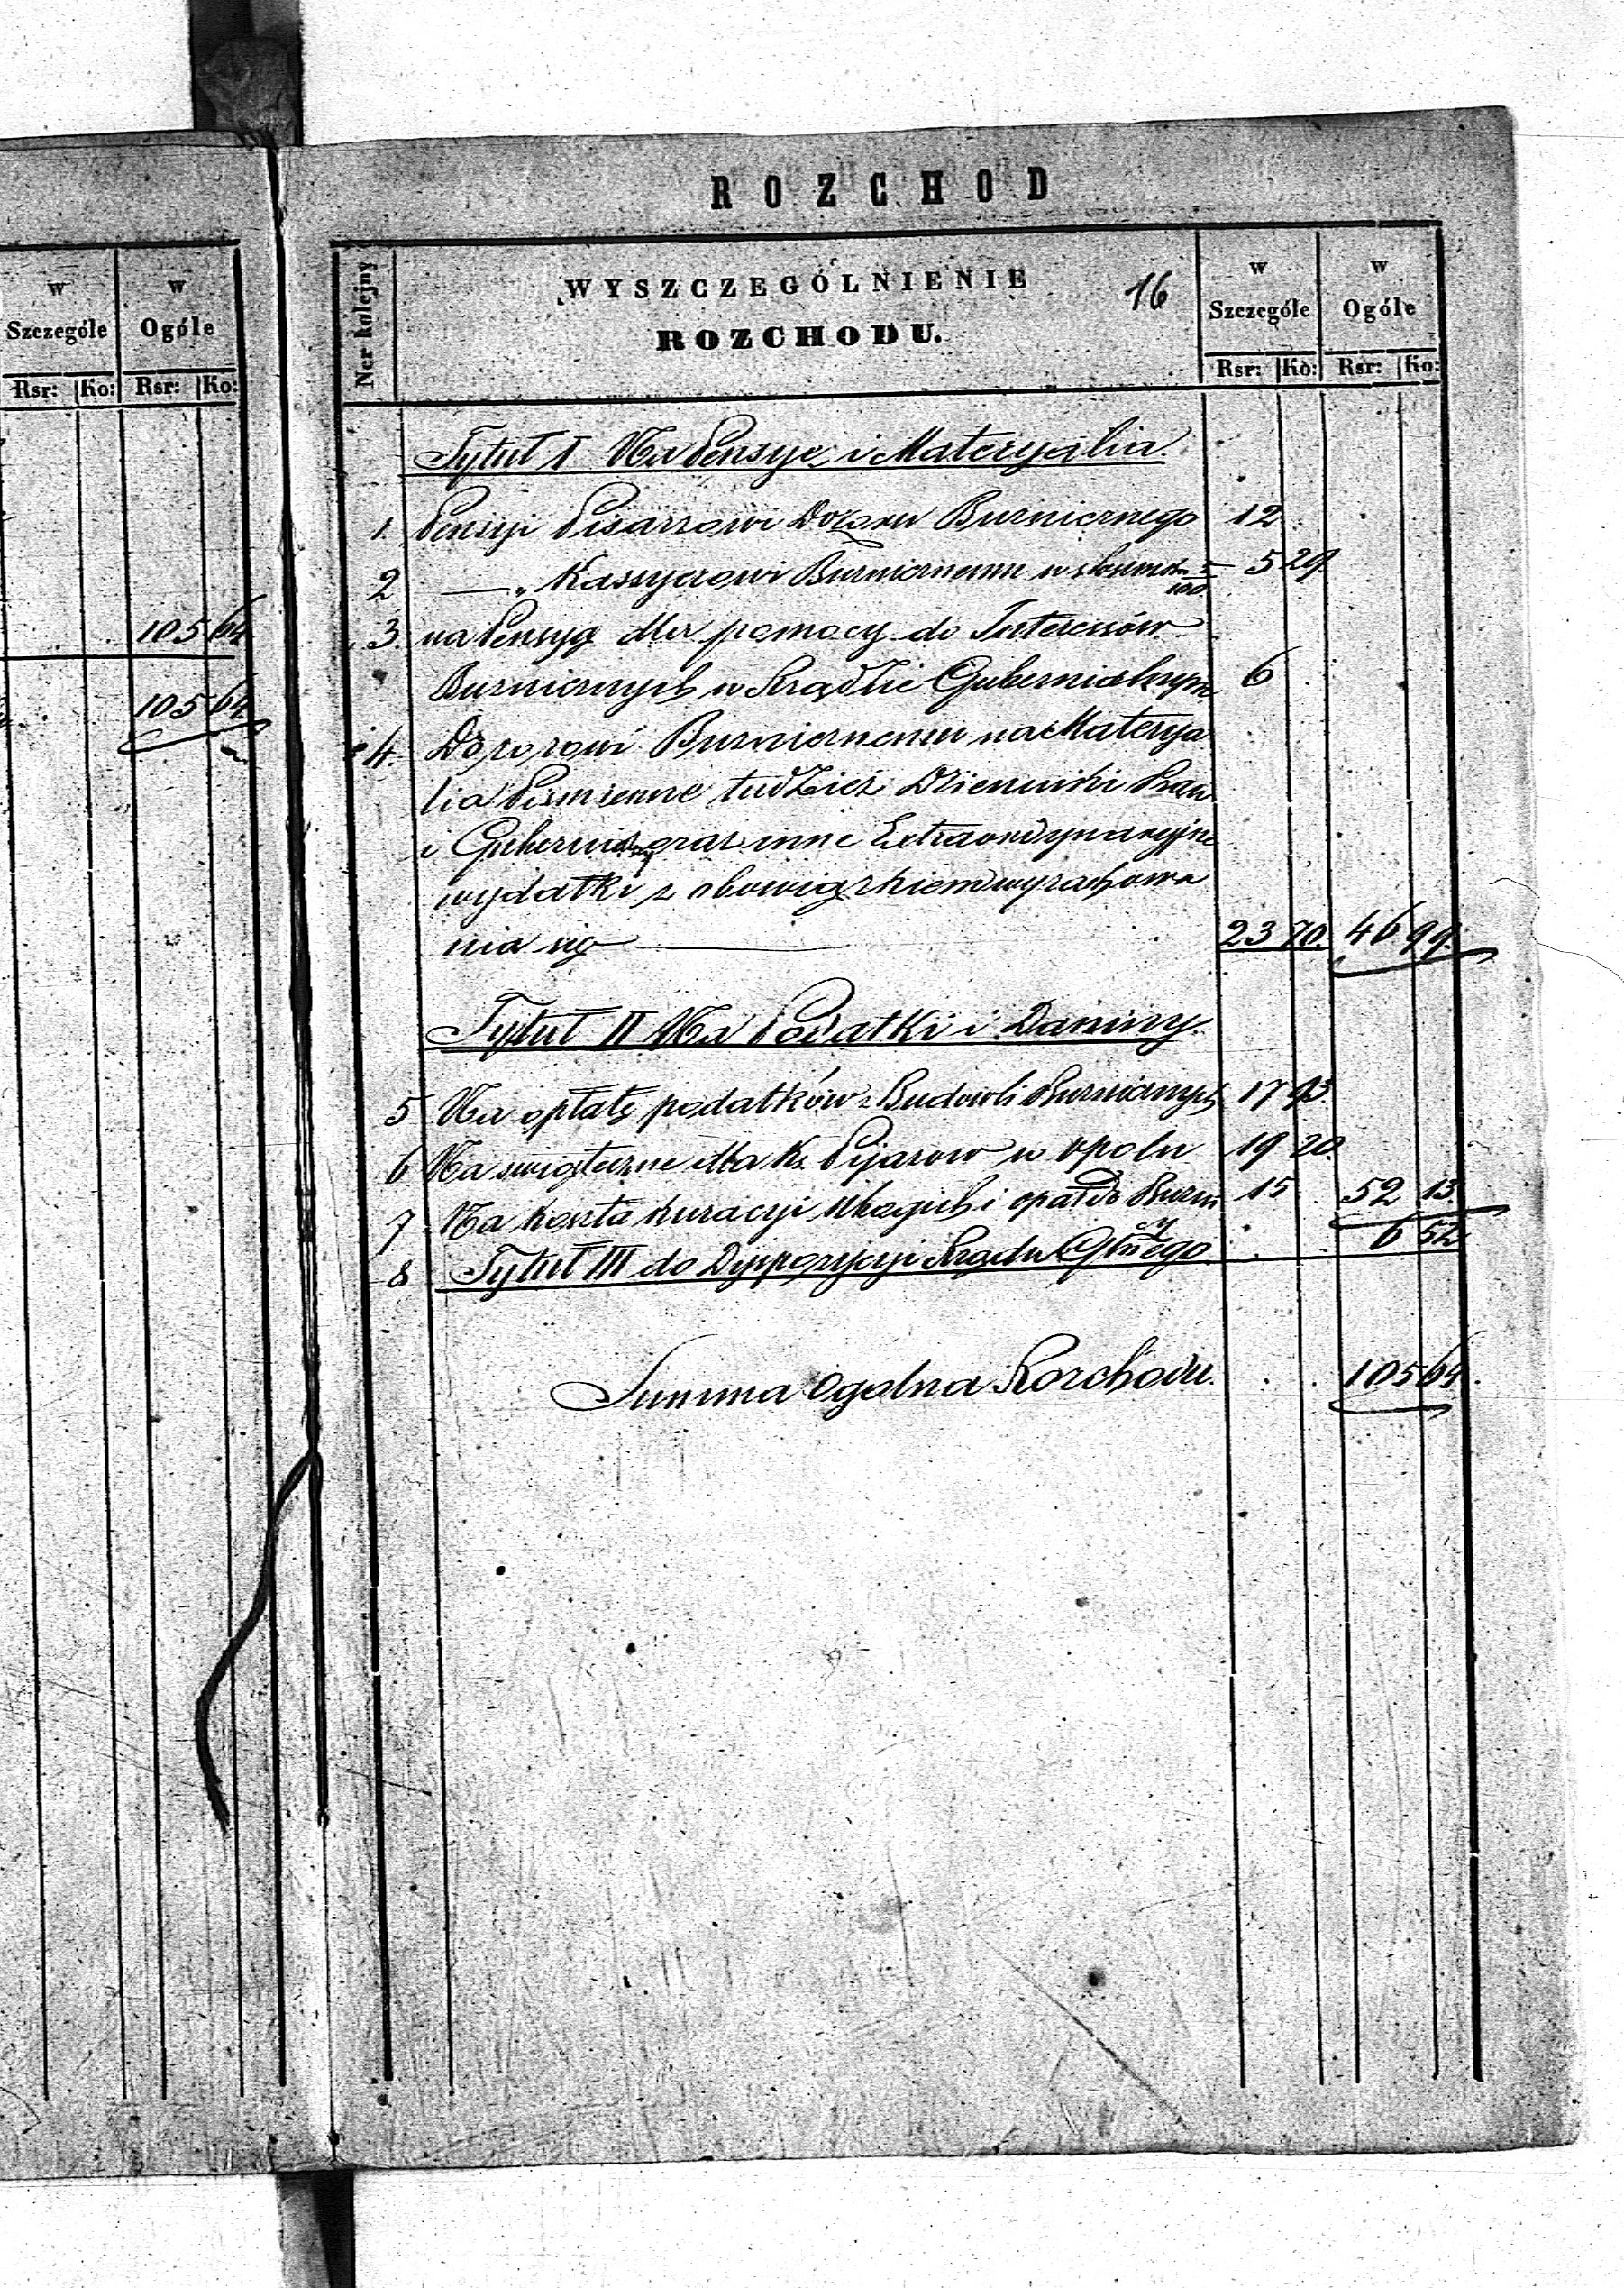 w
w
Szczególe
Ogóle
Rsr: Ko: Rsr: Ko:
105 64
105 64
ROZCHOD
Ner kolejny
WYSZCZEGÓLNIENIE
16
ROZCHODU.
w
w
Szczególe
Ogóle
Rsr: Ko: Rsr: Ko:
Tytuł I Na Pensye i Materyalia.
1. Pensyi Pisarzowi Dozoru Buznicznego 12
2 —„ Kassyerowi Buznicznemu w stosun 5/100 — 5 29.
3. na Pensyą dla pomocy do Interessów
Buznicznych w Rządzie Gubernialnym 6
4. Dozorowi Buznicznemu na Materya
lia Pismienne tudzież Dzienniki Praw
i Gubernialny oraz inne Extraordynaryjne
wydatki z obowiązkiem wyrachowa
nia się 23 70. 46 99.
Tytuł II Na Podatki i Daniny.
5 Na opłatę podatków z Budowli Buznicznych 17 93
6 Na świąteczne dla Ks. Pijarow w Opolu 19 20.
7 Na koszta kuracyi Ubogich i opał do Buzni 15 52 13.
8 Tytuł III do Dyspozycyi Rządu Gbnego 6 52
Summa Ogolna Rozchodu. 105 64.